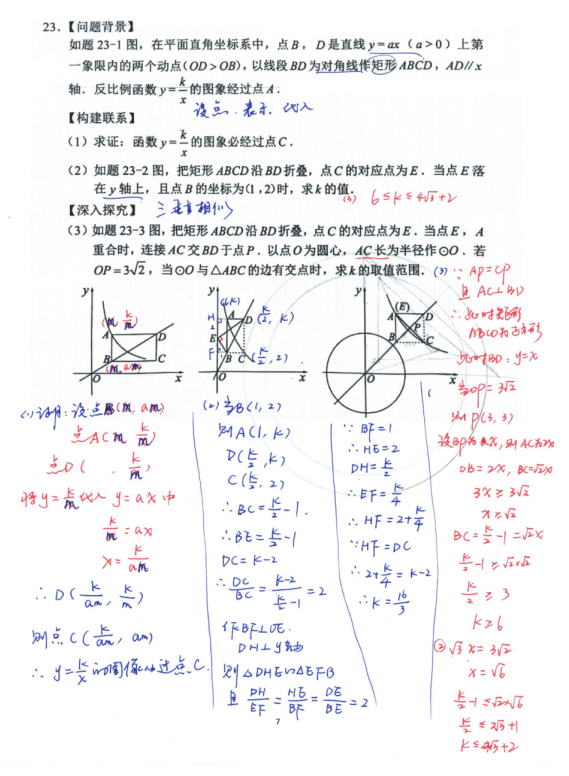 23.【问题背景】
如题 23-1 图，在平面直角坐标系中，点 B，D 是直线 y=ax（a>0）上第
一象限内的两个动点(OD>OB)，以线段 BD 为对角线作矩形 ABCD，AD//x
轴．反比例函数 y=k/x 的图象经过点 A．
设点. 表示. 代入
【构建联系】
（1）求证：函数 y=k/x 的图象必经过点 C．
（2）如题 23-2 图，把矩形 ABCD 沿 BD 折叠，点 C 的对应点为 E．当点 E 落
在 y 轴上，且点 B 的坐标为(1,2)时，求 k 的值．
(3) 6≤k≤4√3+2
【深入探究】
三垂直相似
（3）如题 23-3 图，把矩形 ABCD 沿 BD 折叠，点 C 的对应点为 E．当点 E，A
重合时，连接 AC 交 BD 于点 P．以点 O 为圆心，AC 长为半径作⊙O．若
OP=3√2，当⊙O 与△ABC 的边有交点时，求 k 的取值范围．
y (m, k/m) A D B C (m, am) O x
y (1,k) H A D (k/2, k) E F B C (k/2, 2) O x
y (E) A D P B C O x
(1) 证明: 设点B(m, am)
点A(m, k/m)
点D( , k/m)
将y=k/m代入 y=ax中
k/m=ax
x=k/am
∴D(k/am, k/m)
则点C(k/am, am)
∴y=k/x的图像必过点C.
(2) 当B(1,2)
则A(1,k)
D(k/2, k)
C(k/2, 2)
∴BC=k/2-1.
∴BE=k/2-1
DC=k-2
∴DC/BC=(k-2)/(k/2-1)=2
作BF⊥OE.
DH⊥y轴
则△DHE∽△EFB
且DH/EF=HE/BF=DE/BE=2
∵BF=1
∴HE=2
DH=k/2
∴EF=k/4
∴HF=2+k/4
∵HF=DC
∴2+k/4=k-2
∴k=16/3
(3) ∵AP=CP
且AC⊥BD
∴此时矩形
ABCD为正方形
此时BD: y=x
当OP=3√2
则P(3,3)
设BP为x, 则AC为2x
OB=2x, BC=√2x
3x≥3√2
x≥√2
BC=k/2-1=√2x
k/2-1≥√2×√2
k/2≥3
k≥6
② √3x=3√2
x=√6
k/2-1≤√2×√6
k/2≤2√3+1
k≤4√3+2
7